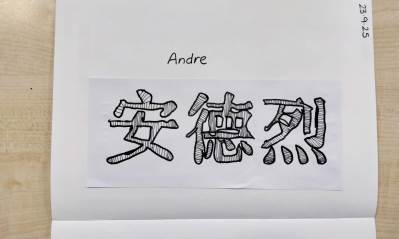 23.9.25
Andre
安德烈